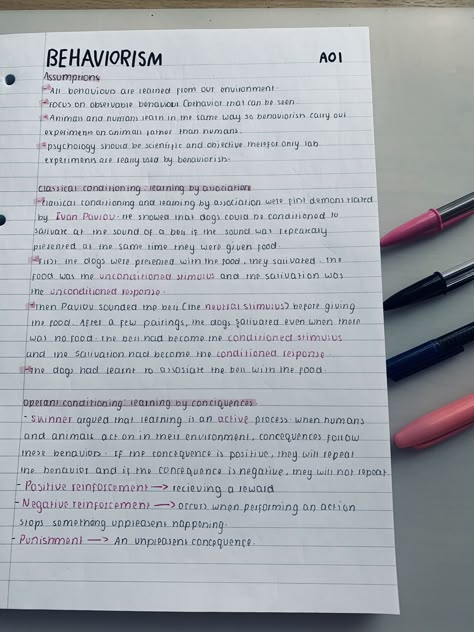 BEHAVIORISM AO1
Assumptions
All behaviours are learned from our environment.
Focus on observable behaviour (behavior that can be seen.
Animals and humans learn in the same way so behaviorism carry out
experiments on animals rather than humans.
psychology should be scientific and objective therefor only lab
experiments are really used by behaviorism.
Classical conditioning: learning by association
classical conditioning and learning by association were first demonstrated
by Ivan Pavlov. He showed that dogs could be conditioned to
salivate at the sound of a bell if the sound was repeatedly
presented at the same time they were given food.
First the dogs were presented with the food, they salivated. The
food was the unconditioned stimulus and the salivation was
the unconditioned response.
Then Pavlov sounded the bell (the neutral stimulus) before giving
the food. After a few pairings, the dogs salivated even when there
was no food. the bell had become the conditioned stimulus
and the salivation had become the conditioned response.
the dogs had learnt to assosiate the bell with the food.
operant conditioning: learning by conciquences
- Skinner argued that learning is an active process. when humans
and animals act on in their environment, concequences follow
these behaviors. If the concequence is positive, they will repeat
the behavior and if the concequence is negative, they will not repeat.
- Positive reinforcement → recieving a reward
- Negative reinforcement → occurs when performing an action
stops something unpleasent happening.
- Punishment → An unpleasent concequence.